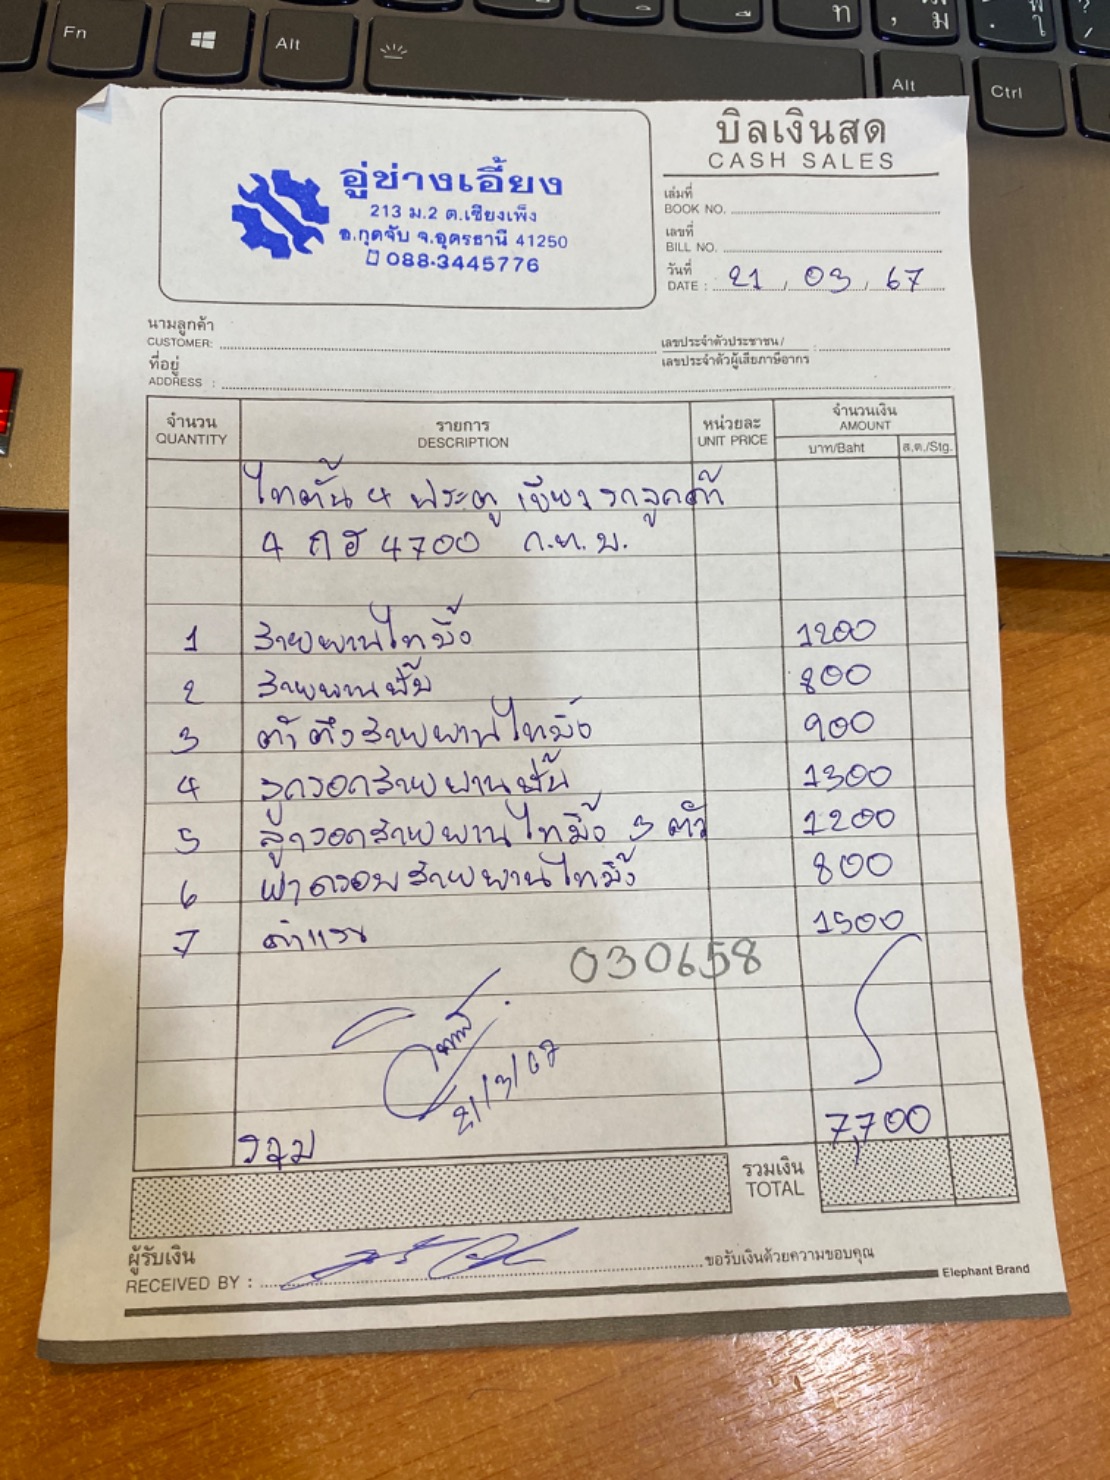 Fn
Alt
Alt
Ctrl
บิลเงินสด
CASH SALES
อู่ช่างเอี้ยง
213 ม.2 ต.เชียงเพ็ง
อ.กุดจับ จ.อุดรธานี 41250
088-3445776
เล่มที่
BOOK NO.
เลขที่
BILL NO.
วันที่
DATE : 21 / 03 / 67
นามลูกค้า
CUSTOMER:
เลขประจำตัวประชาชน/
เลขประจำตัวผู้เสียภาษีอากร :
ที่อยู่
ADDRESS :
จำนวน รายการ หน่วยละ จำนวนเงิน
QUANTITY DESCRIPTION UNIT PRICE AMOUNT
บาท/Baht ส.ต./Stg.
ไททั้น 4 ประตู เขียว รถลูกค้า
4 ฒฮ 4700 ก.ท.ม.
1 สายพานไทมิ้ง 1200
2 สายพานปั้ม 800
3 ตัวตึงสายพานไทมิ้ง 900
4 ลูกรอกสายพานปั้ม 1300
5 ลูกรอกสายพานไทมิ้ง 3 ตัว 1200
6 ฝาครอบสายพานไทมิ้ง 800
7 ค่าแรง 1500
030658
21/3/67
รวม 7,700
รวมเงิน
TOTAL
ผู้รับเงิน
RECEIVED BY :
ขอรับเงินด้วยความขอบคุณ
Elephant Brand